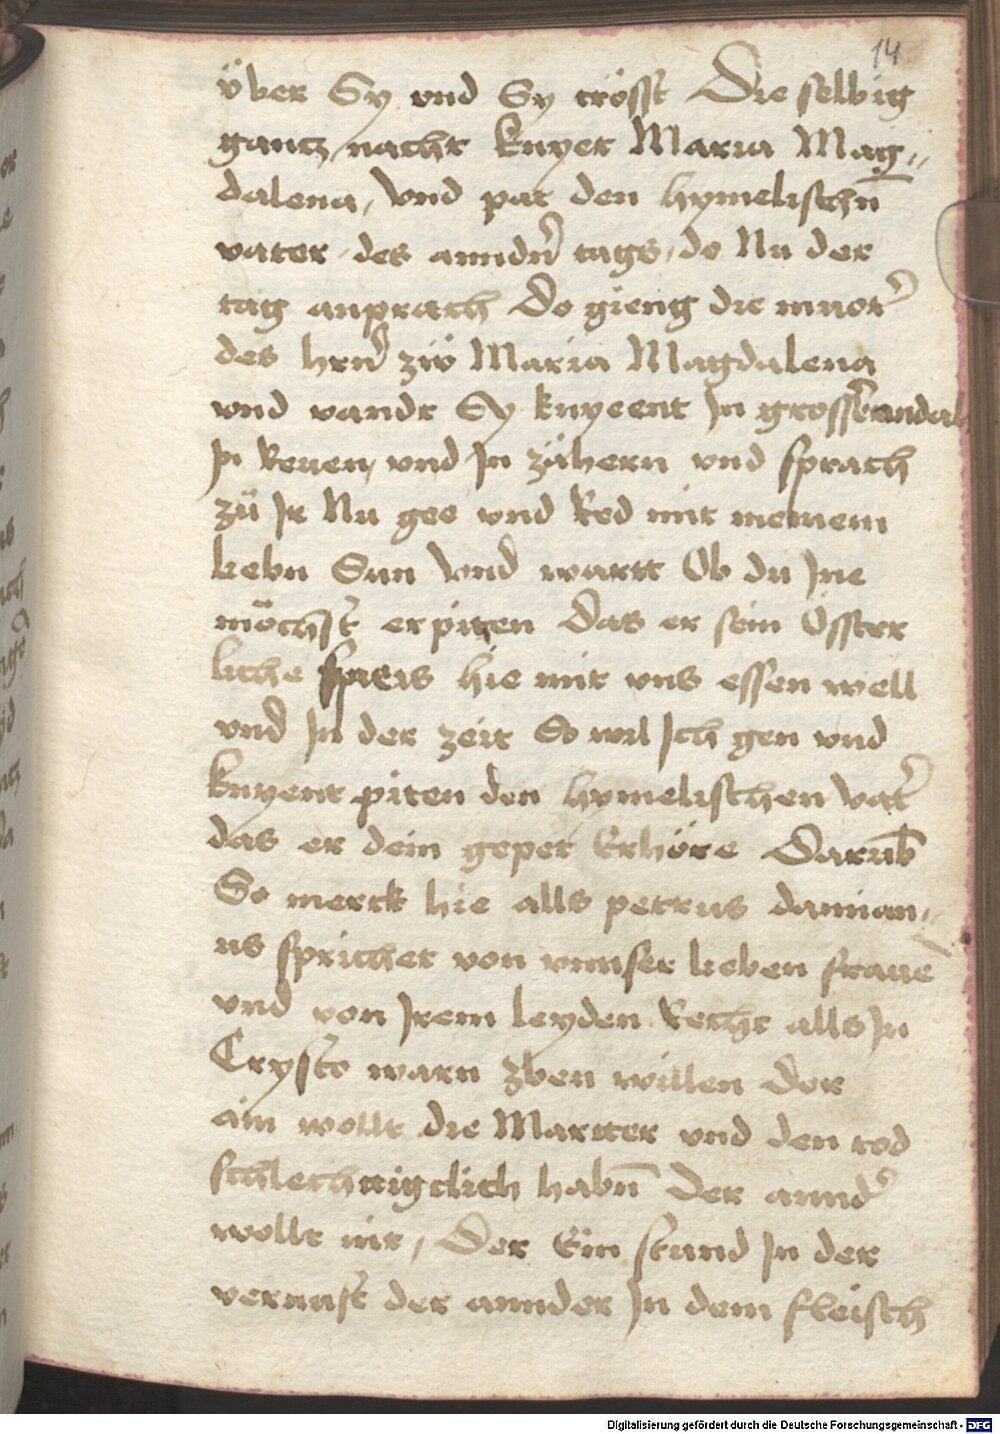 14
über Sy vnd Sy trösst Die selbig
gantz nacht knyet Maria Mag„
dalena, Vnd pat den hymelischn̄
vater des anndn̄ tags, do Nu der
tag anprach Do gieng die muot̄
des hrn̄ zw Maria Magdalena
vnd vandt Sy knyeent Jn grosser andacht
Jn Reuen, vnd Jn zähern vnd sprach
zü Jr Nu gee vnd Red mit meinem
liebn Sun Vnd wartt Ob du Jne
möchst erpiten Das er sein Össter
liche speis hie mit vns essen well
vnd Jn der zeit So wil Jch gen vnd
knyent piten den hymelischen Vat̄
das er dein gepet Erhöre Darub̄
So merck hie alls petrus damian„
us sprichet von vnnser lieben fraue̅
vnd von Jrem leyden Recht alls Jn
Crysto warn zben willen Der
ain wollt die Martter vnd den tod
schlechttigclich habn̄ Der annd̄
wollt nit, Der Ein stund Jn der
vernufft der annder Jn dem fleisch
Digitalisierung gefördert durch die Deutsche Forschungsgemeinschaft - DFG